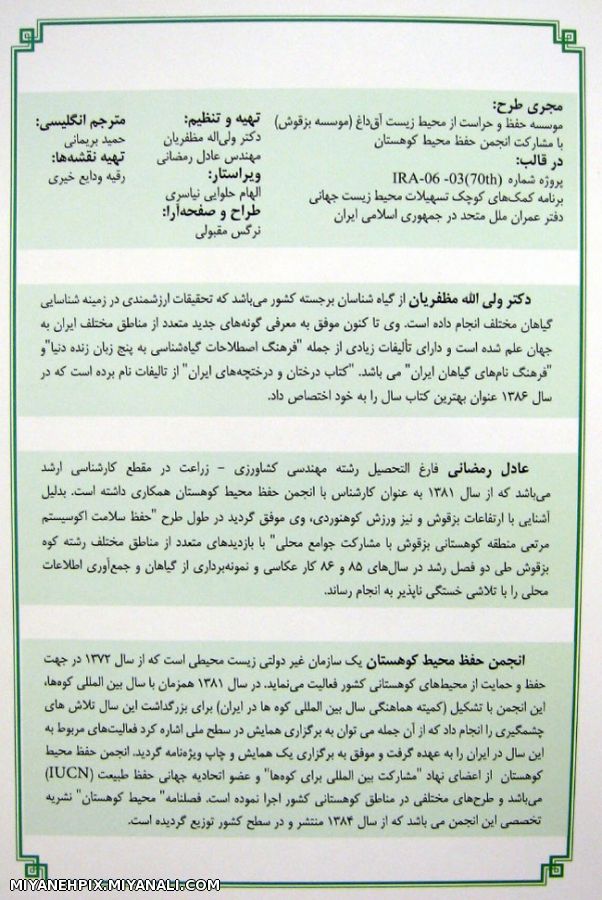 مجری طرح:
موسسه حفظ و حراست از محیط زیست آق‌داغ (موسسه بزقوش)
با مشارکت انجمن حفظ محیط کوهستان
در قالب:
پروژه شماره IRA-06 -03(70th)
برنامه کمک‌های کوچک تسهیلات محیط زیست جهانی
دفتر عمران ملل متحد در جمهوری اسلامی ایران
تهیه و تنظیم:
دکتر ولی‌اله مظفریان
مهندس عادل رمضانی
ویراستار:
الهام حلوایی نیاسری
طراح و صفحه‌آرا:
نرگس مقبولی
مترجم انگلیسی:
حمید بریمانی
تهیه نقشه‌ها:
رقیه ودایع خیری
دکتر ولی الله مظفریان از گیاه شناسان برجسته کشور می‌باشد که تحقیقات ارزشمندی در زمینه شناسایی
گیاهان مختلف انجام داده است. وی تا کنون موفق به معرفی گونه‌های جدید متعدد از مناطق مختلف ایران به
جهان علم شده است و دارای تألیفات زیادی از جمله "فرهنگ اصطلاحات گیاه‌شناسی به پنج زبان زنده دنیا"و
"فرهنگ نام‌های گیاهان ایران" می باشد. "کتاب درختان و درختچه‌های ایران" از تالیفات نام برده است که در
سال ۱۳۸۶ عنوان بهترین کتاب سال را به خود اختصاص داد.
عادل رمضانی فارغ التحصیل رشته مهندسی کشاورزی - زراعت در مقطع کارشناسی ارشد
می‌باشد که از سال ۱۳۸۱ به عنوان کارشناس با انجمن حفظ محیط کوهستان همکاری داشته است. بدلیل
آشنایی با ارتفاعات بزقوش و نیز ورزش کوهنوردی، وی موفق گردید در طول طرح "حفظ سلامت اکوسیستم
مرتعی منطقه کوهستانی بزقوش با مشارکت جوامع محلی" با بازدیدهای متعدد از مناطق مختلف رشته کوه
بزقوش طی دو فصل رشد در سال‌های ۸۵ و ۸۶ کار عکاسی و نمونه‌برداری از گیاهان و جمع‌آوری اطلاعات
محلی را با تلاشی خستگی ناپذیر به انجام رساند.
انجمن حفظ محیط کوهستان یک سازمان غیر دولتی زیست محیطی است که از سال ۱۳۷۲ در جهت
حفظ و حمایت از محیط‌های کوهستانی کشور فعالیت می‌نماید. در سال ۱۳۸۱ همزمان با سال بین المللی کوه‌ها،
این انجمن با تشکیل (کمیته هماهنگی سال بین المللی کوه ها در ایران) برای بزرگداشت این سال تلاش های
چشمگیری را انجام داد که از آن جمله می توان به برگزاری همایش در سطح ملی اشاره کرد فعالیت‌های مربوط به
این سال در ایران را به عهده گرفت و موفق به برگزاری یک همایش و چاپ ویژه‌نامه گردید. انجمن حفظ محیط
کوهستان از اعضای نهاد "مشارکت بین المللی برای کوه‌ها" و عضو اتحادیه جهانی حفظ طبیعت (IUCN)
می‌باشد و طرح‌های مختلفی در مناطق کوهستانی کشور اجرا نموده است. فصلنامه" محیط کوهستان" نشریه
تخصصی این انجمن می باشد که از سال ۱۳۸۴ منتشر و در سطح کشور توزیع گردیده است.
MIYANEHPIX.MIYANALI.COM